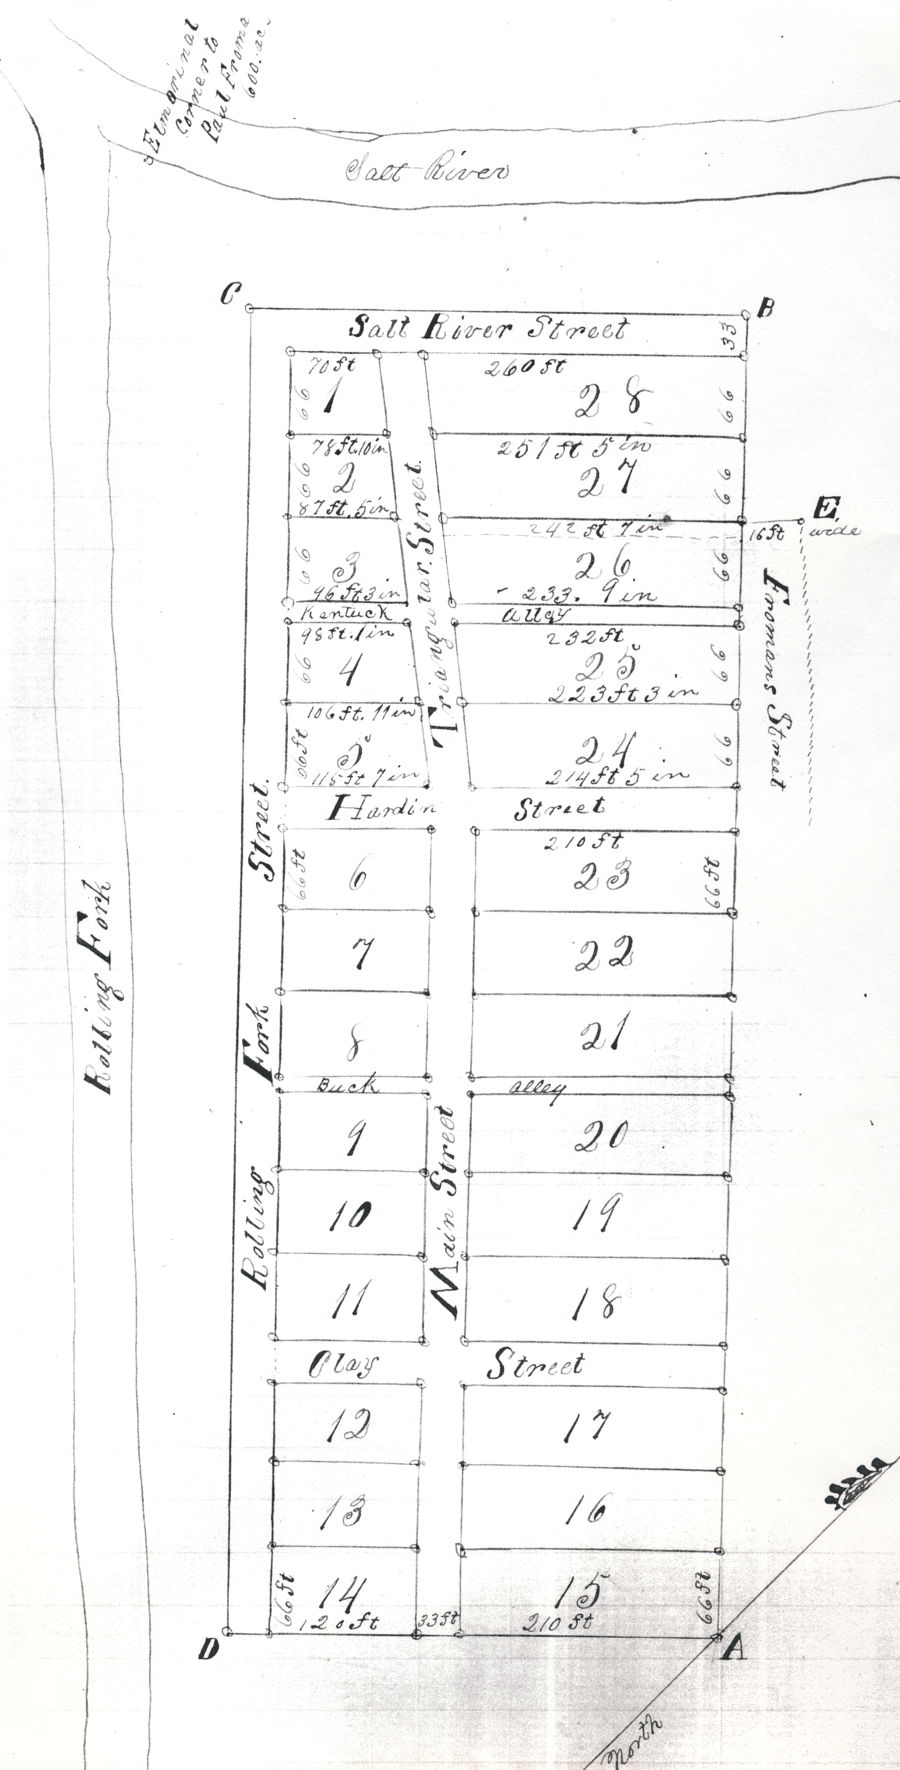 Elm original
Corner to
Paul Froma
600. ac.
Salt River
C
B
Salt River Street
33
70 ft
260 ft
66
1
28
66
78 ft. 10 in
251 ft 5 in
66
2
27
66
87 ft. 5 in
242 ft 7 in
E
16 ft wide
66
3
26
66
96 ft 3 in
233. 9 in
Kentuck
alley
98 ft. 1 in
232 ft
66
4
25
66
106 ft. 11 in
223 ft 3 in
66 ft
5
24
66
115 ft 7 in
214 ft 5 in
Triangular Street.
Fromans Street
Hardin Street
210 ft
66 ft
6
23
66 ft
7
22
8
21
Buck alley
9
20
10
19
11
18
Main Street
Rolling Fork Street.
Rolling Fork
Clay Street
12
17
13
16
66 ft
14
15
66 ft
120 ft
33 ft
210 ft
D
A
North